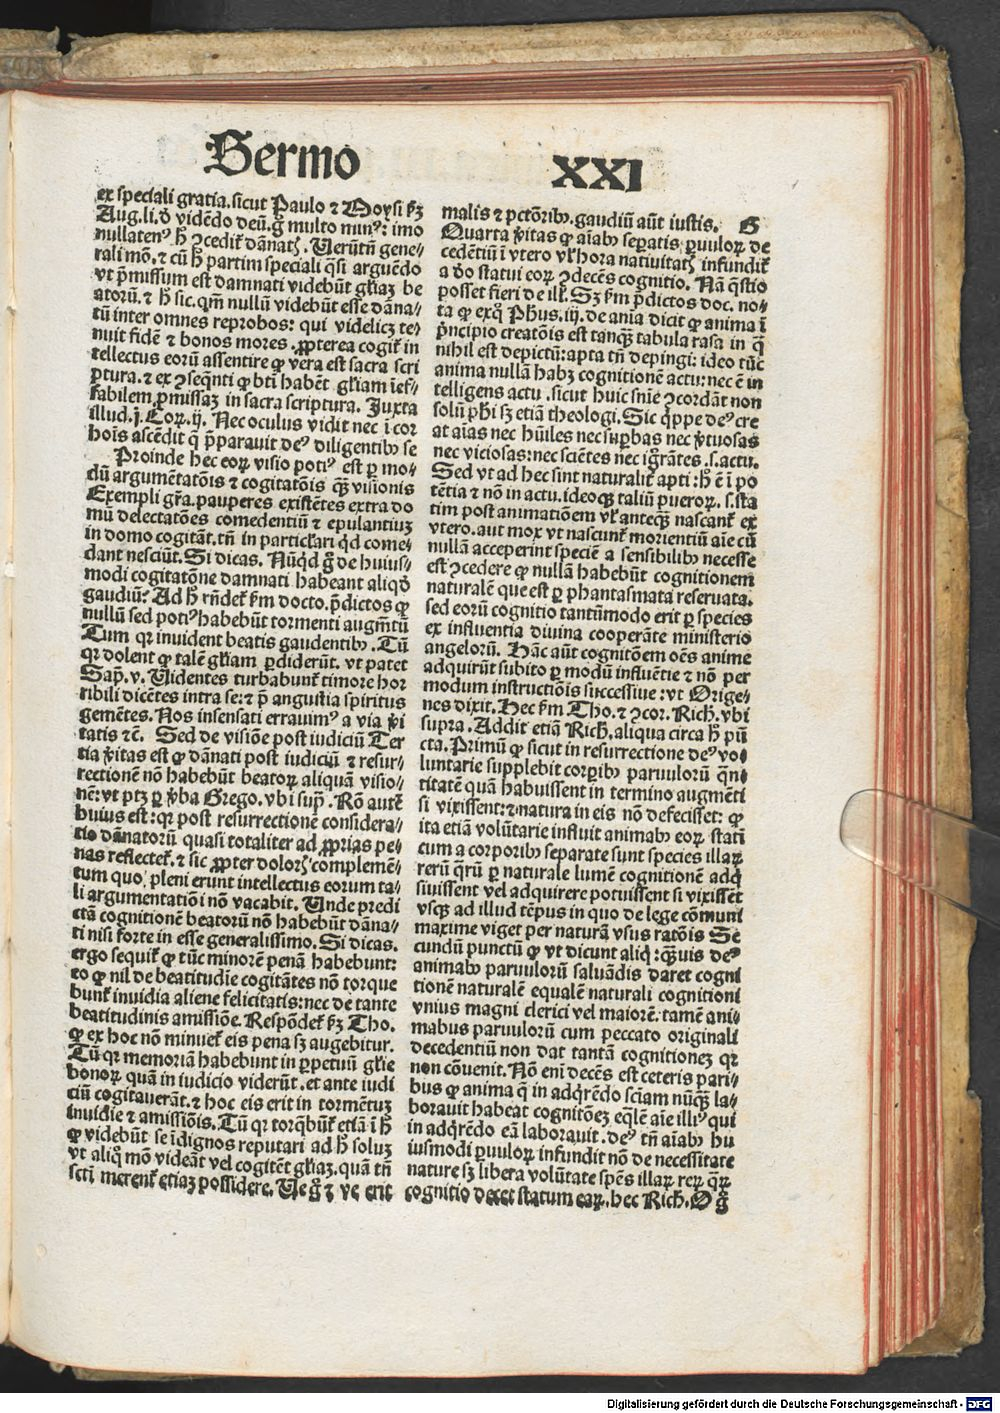 Sermo XXI
ex speciali gratia. sicut Paulo ⁊ Moysi ẜꝫ
Aug. li. đ vidēdo deū. g̃ multo minꝰ: imo
nullatenꝰ h̄ ꝯcedit᷑ dānatꝭ. Uerūtn̄ gene⸗
rali mō. ⁊ cū h̄ partim speciali q̄si arguēdo
vt p̄missum est damnati videbūt gl̄iaꝫ be
atorū. ⁊ h̄ sic. qm̄ nullū videbūt esse dāna⸗
tū inter omnes reprobos: qui videlicꝫ te⸗
nuit fidē ⁊ bonos mores. ꝓpterea cogit᷑ in
tellectus eorū assentire ꝙ vera est sacra scri
ptura. ⁊ ex ꝯseq̄nti ꝙ bt̄i habēt gl̄iam īef⸗
fabilem ꝓmissaꝫ in sacra scriptura. Juxta
illud. j. Coꝝ. ij. Nec oculus vidit nec ī cor
hoīs ascēdit q̄ p̄parauit deꝰ diligentibꝰ se
Proinde hec eoꝝ visio potiꝰ est ꝑ mo⸗
dū argumētatōis ⁊ cogitatōis qꝫ̄ visionis
Exempli gr̄a. pauperes existētes extra do
mū delectatōes comedentiū ⁊ epulantiuꝫ
in domo cogitāt. tn̄ in particl̄ari qͥd come⸗
dant nesciūt. Si dicas. Nūqͥd g̃ de huius⸗
modi cogitatōne damnati habeant aliqđ
gaudiū? Ad h̄ rn̄det᷑ ẜm docto. p̄dictos ꝙ
nullū sed potiꝰ habebūt tormenti augm̄tū
Tum qꝛ inuident beatis gaudentibꝰ. Tū
qꝛ dolent ꝙ talē gl̄iam ꝑdiderūt. vt patet
Sap̄. v. Uidentes turbabunt᷑ timore hor
ribili dicētes intra se: ⁊ p̄ angustia spiritus
gemētes. Nos insensati errauimꝰ a via v̓i
tatis ⁊c̄. Sed de visiōe post iudiciū Ter
tia v̓itas est ꝙ dānati post iudiciū ⁊ resur⸗
rectionē nō habebūt beatoꝝ aliquā visio⸗
nē: vt ptꝫ ꝑ v̓ba Grego. vbi sup̄. Rō autē
huius est: qꝛ post resurrectionē considera⸗
tio dānatorū quasi totaliter ad ꝓprias pe⸗
nas reflectet᷑. ⁊ sic ꝓpter dolorꝭ complemē⸗
tum quo pleni erunt intellectus eorum ta⸗
li argumentatiōi nō vacabit. Unde predi
ctā cognitionē beatorū nō habebūt dāna⸗
ti nisi forte in esse generalissimo. Si dicas.
ergo sequit᷑ ꝙ tūc minorē penā habebunt:
eo ꝙ nil de beatitudīe cogitātes nō torque
bunt᷑ inuidia aliene felicitatis: nec de tante
beatitudinis amissiōe. Respōdet᷑ ẜꝫ Tho.
ꝙ ex hoc nō minuet᷑ eis pena sꝫ augebitur.
Tū qꝛ memoriā habebunt in ꝑpetuū gl̄ie
bonoꝝ quā in iudicio viderūt. et ante iudi
ciū cogitauerāt. ⁊ hoc eis erit in tormētuꝫ
inuidie ⁊ amissiōis. Tū qꝛ torq̄būt᷑ etiā ī h̄
ꝙ videbūt se īdignos reputari ad h̄ soluꝫ
vt aliqͦ mō videāt vel cogitēt gl̄iaꝫ. quā tn̄
scti merent᷑ etiaꝫ possidere. Ue g̃ ⁊ ve erit
malis ⁊ pctōribꝰ. gaudiū aūt iustis. G
Quarta v̓itas ꝙ aīabꝰ seꝑatis ꝑuuloꝝ de
cedentiū ī vtero vl̓ hora natiuitatꝭ infundit᷑
a đo statui eoꝝ ꝯdecēs cognitio. Nā q̄stio
posset fieri de ill̓. Sꝫ ẜm p̄dictos doc. no⸗
ta ꝙ exqͦ Ph̓us. iij. de anīa dicit ꝙ anima ī
p̄ncipio creatōis est tanqꝫ̄ tabula rasa in q̄
nihil est depictū: apta tn̄ depingi: ideo tūc
anima nullā habꝫ cognitionē actu: nec ē in
telligens actu. sicut huic snīe ꝯcordāt non
solū ph̓i sꝫ etiā theologi. Sic q̄ppe deꝰ cre
at aīas nec hūiles nec suꝑbas nec v̓tuosas
nec viciosas: nec sciētes nec igr̄ātes. s. actu.
Sed vt ad hec sint naturalit᷑ apti: h̄ ē ī po
tētia ⁊ nō in actu. ideoqꝫ taliū pueroꝝ. s. sta
tim post animatiōem vl̓ anteqꝫ̄ nascant᷑ ex
vtero. aut mox vt nascunt᷑ morientiū aīe cū
nullā acceperint speciē a sensibilibꝰ necesse
est ꝯcedere ꝙ nullā habebūt cognitionem
naturalē que est ꝑ phantasmata reseruata.
sed eorū cognitio tantūmodo erit ꝑ species
ex influentia diuina cooperāte ministerio
angelorū. Hāc aūt cognitōem oēs anime
adquirūt subito ꝑ modū influētie ⁊ nō per
modum instructiōis successiue: vt Orige⸗
nes dixit. Hec ẜm Tho. ⁊ ꝯcor. Rich̄. vbi
supra. Addit etiā Rich̄. aliqua circa h̄ pū
cta. Primū ꝙ sicut in resurrectione deꝰ vo⸗
luntarie supplebit corꝑibꝰ paruulorū q̄n⸗
titatē quā habuissent in termino augmēti
si vixissent: ⁊ natura in eis nō defecisset: ꝙ
ita etiā volūtarie influit animabꝰ eoꝝ statī
cum a corporibꝰ separate sunt species illaꝝ
rerū q̄rū ꝑ naturale lumē cognitionē adq̄
siuissent vel adquirere potuissent si vixissēt
vsqꝫ ad illud tēpus in quo de lege cōmuni
maxime viget per naturā vsus ratōis Se
cundū punctū ꝙ vt dicunt aliqͥ: qꝫ̄uis deꝰ
animabꝰ paruulorū saluādis daret cogni
tionē naturalē equalē naturali cognitioni
vnius magni clerici vel maiorē. tamē ani⸗
mabus paruulorū cum peccato originali
decedentiū non dat tantā cognitioneꝫ qꝛ
non cōuenit. Nō eni decēs est ceteris pari⸗
bus ꝙ anima q̄ in adq̄rēdo sciam nūqꝫ̄ la⸗
borauit habeat cognitōeꝫ eq̄lē aīe illiꝰ qui
in adq̄rēdo eā laborauit. deꝰ tn̄ aīabꝰ hu
iusmodi ꝑuuloꝝ infundit nō de necessitate
nature sꝫ libera volūtate spēs illaꝝ reꝝ q̄ꝝ
cognitio decet statum eaꝝ. hec Rich̄. O g̃
Digitalisierung gefördert durch die Deutsche Forschungsgemeinschaft - DFG